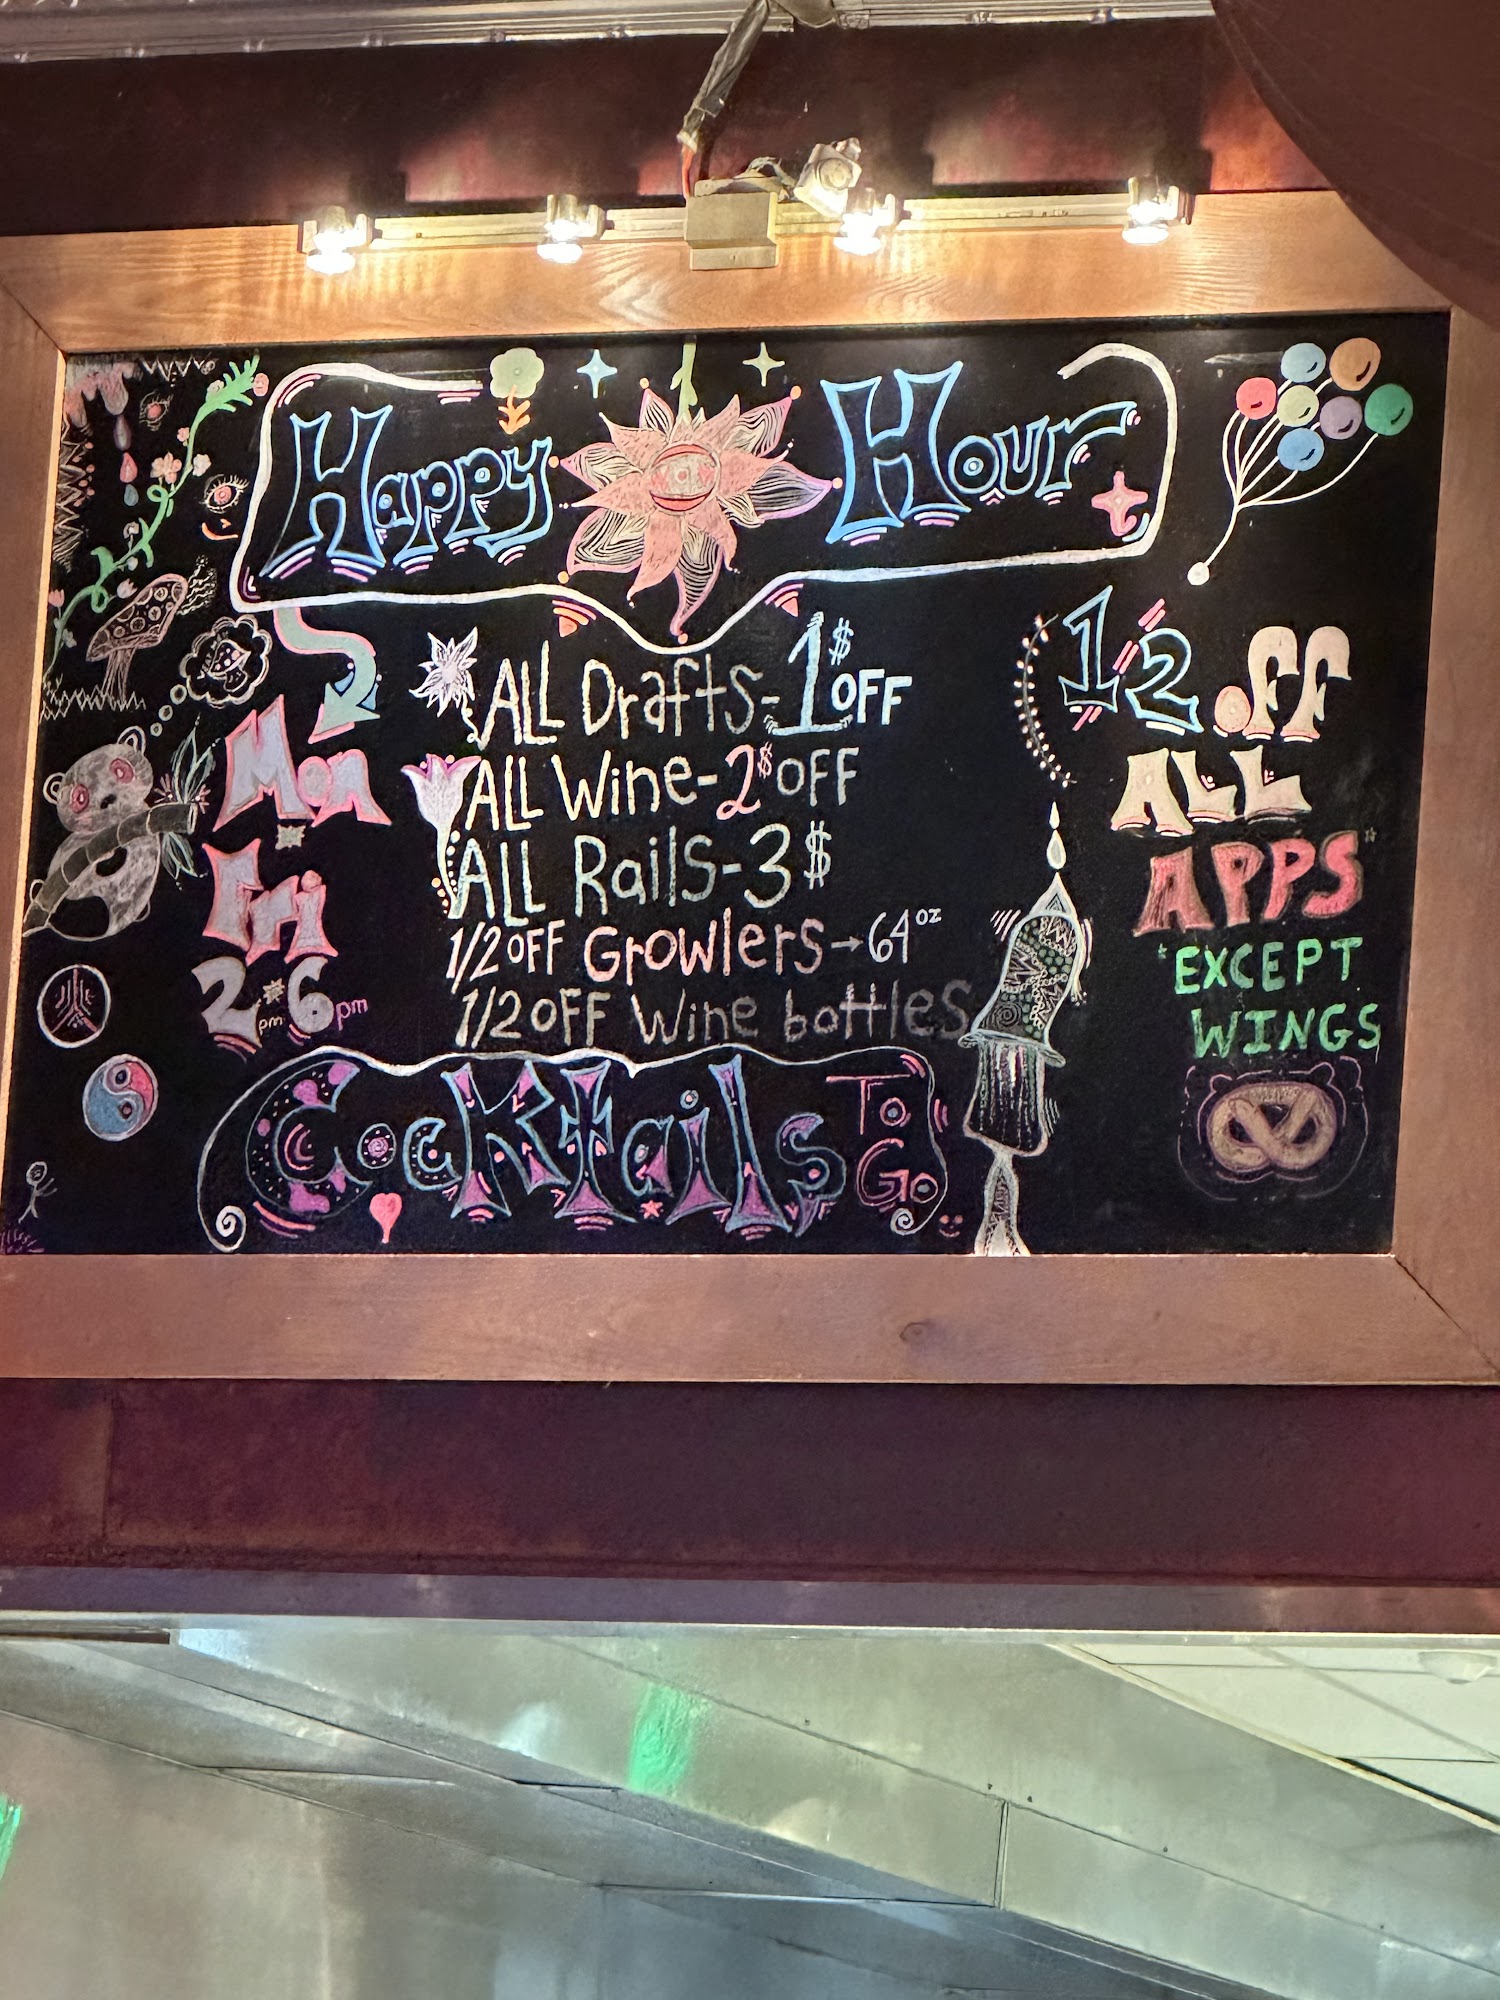 Happy Hour
Mon
Fri
2pm-6pm
ALL Drafts-1$ OFF
ALL Wine-2$ OFF
ALL Rails-3$
1/2 OFF Growlers→64oz
1/2 OFF Wine bottles
Cocktails To Go
1/2 off
ALL
APPS*
*EXCEPT
WINGS